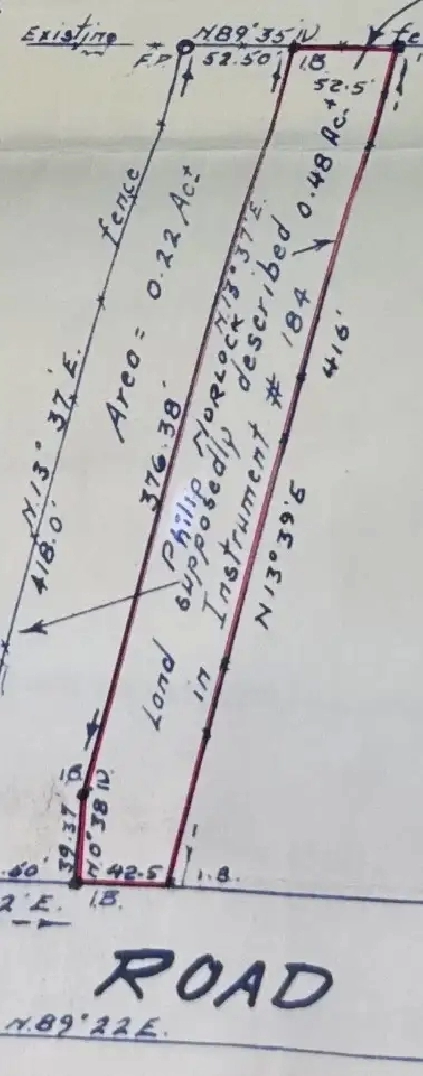 Existing
N.89°35'W
fe
F.P.
52.50'
I.B.
52.5'
fence
Area = 0.22 Ac.±
0.48 Ac.±
N.13°37'E.
418.0'
N13°37'E.
376.38'
Philip MORLOCK
Land supposedly described
in Instrument # 184
416'
N13°39'E
I.B.
39.37'
N0°38'W
42.5
I.B.
.50'
2'E.
I.B.
ROAD
N.89°22E.